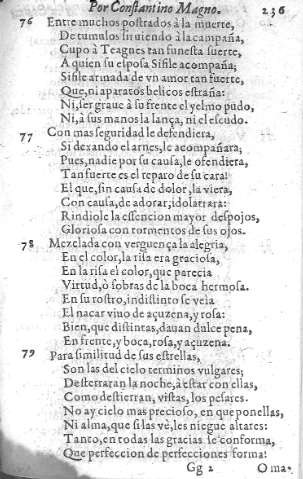 Por Constantino Magno. 236
76 Entre muchos postrados à la muerte,
De tumulos siruiendo à la campaña,
Cupo à Teagnes tan funesta suerte,
A quien su esposa Sisile acompaña;
Sisile armada de vn amor tan fuerte,
Que, ni aparatos belicos estraña:
Ni, ser graue à su frente el yelmo pudo,
Ni, à sus manos la lança, ni el escudo.
77 Con mas seguridad le defendiera,
Si dexando el arnes, le acompañara;
Pues, nadie por su causa, le ofendiera,
Tan fuerte es el reparo de su cara!
El que, sin causa de dolor, la viera,
Con causa, de adorar, idolatrara:
Rindiole la essencion mayor despojos,
Gloriosa con tormentos de sus ojos.
78 Mezclada con verguença la alegria,
En el color, la risa era graciosa,
En la risa el color, que parecia
Virtud, ò sobras de la boca hermosa.
En su rostro, indistinto se veia
El nacar viuo de açuzena, y rosa:
Bien, que distintas, dauan dulce pena,
En frente, y boca, rosa, y açuzena.
79 Para similitud de sus estrellas,
Son las del cielo terminos vulgares;
Desterraran la noche, à estar con ellas,
Como destierran, vistas, los pesares.
No ay cielo mas precioso, en que ponellas,
Ni alma, que si las vè, les niegue altares:
Tanto, en todas las gracias se conforma,
Que perfeccion de perfecciones forma:
Gg 2 Oma-